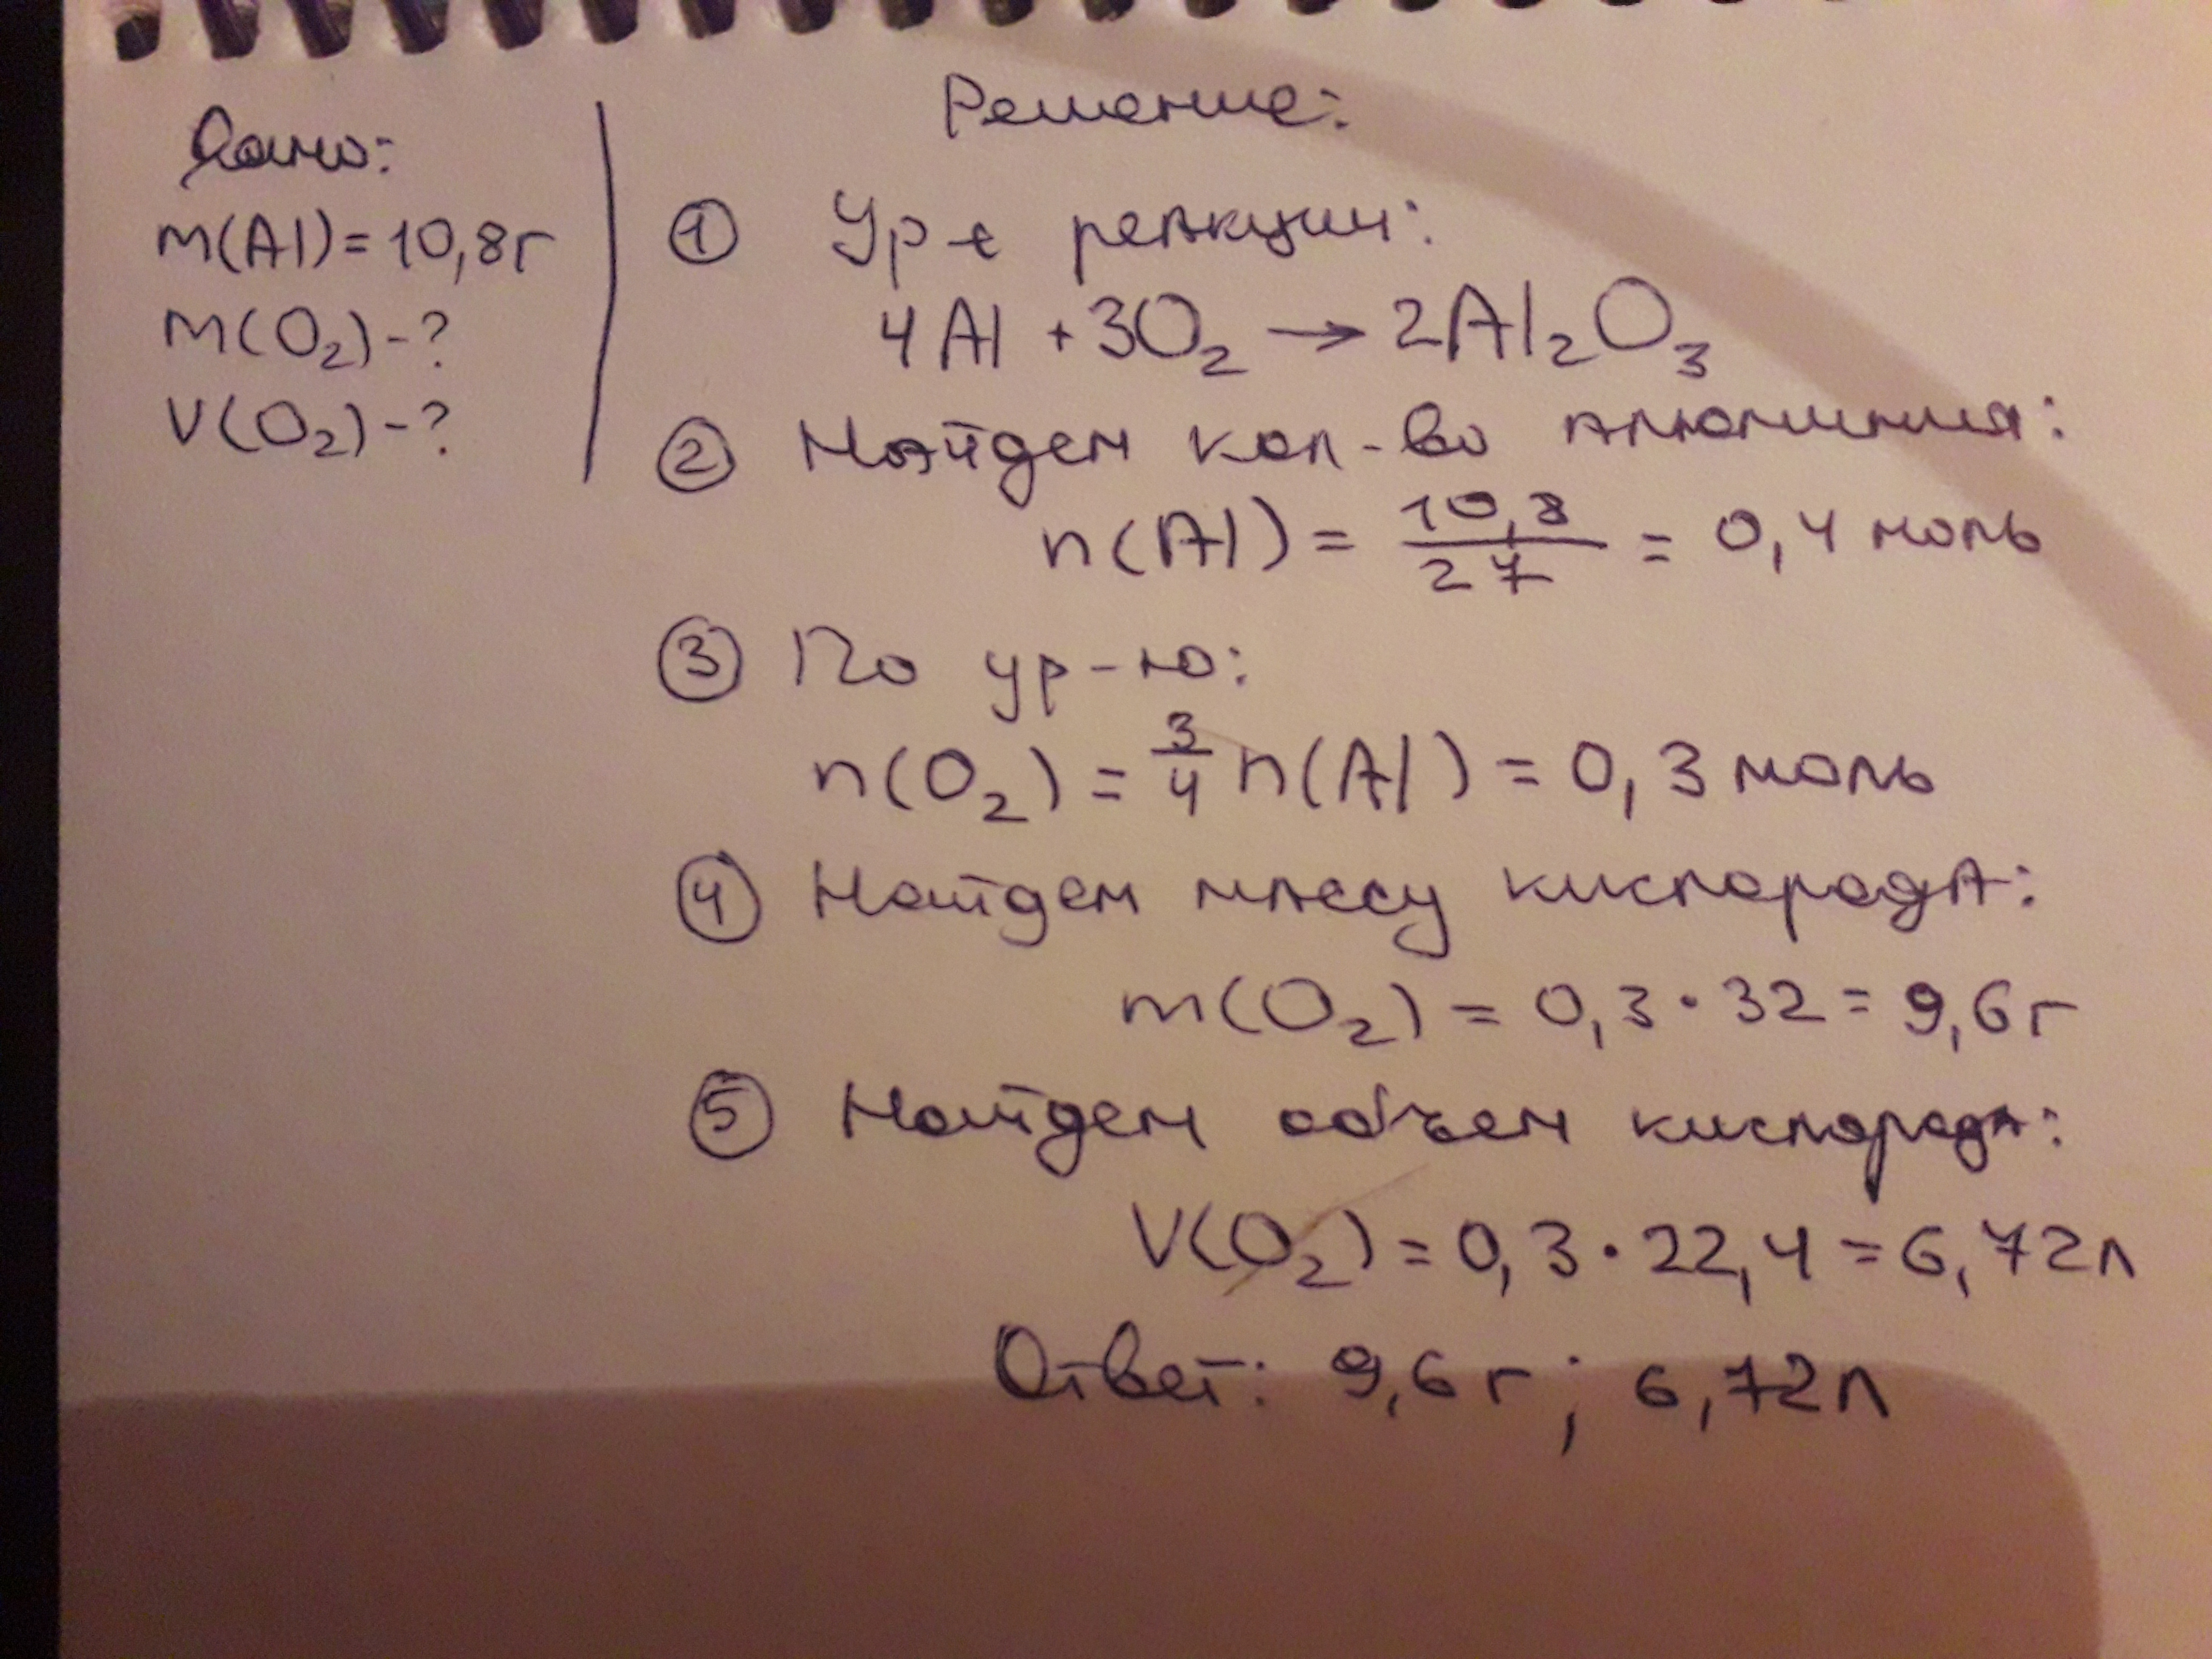 Дано:
m(Al)=10,8г
m(O₂)-?
V(O₂)-?
Решение:
① Ур-е реакции:
4Al + 3O₂ → 2Al₂O₃
② Найдем кол-во алюминия:
n(Al) = 10,8/27 = 0,4 моль
③ По ур-ю:
n(O₂) = 3/4 n(Al) = 0,3 моль
④ Найдем массу кислорода:
m(O₂) = 0,3 · 32 = 9,6 г
⑤ Найдем объем кислорода:
V(O₂) = 0,3 · 22,4 = 6,72 л
Ответ: 9,6 г ; 6,72 л